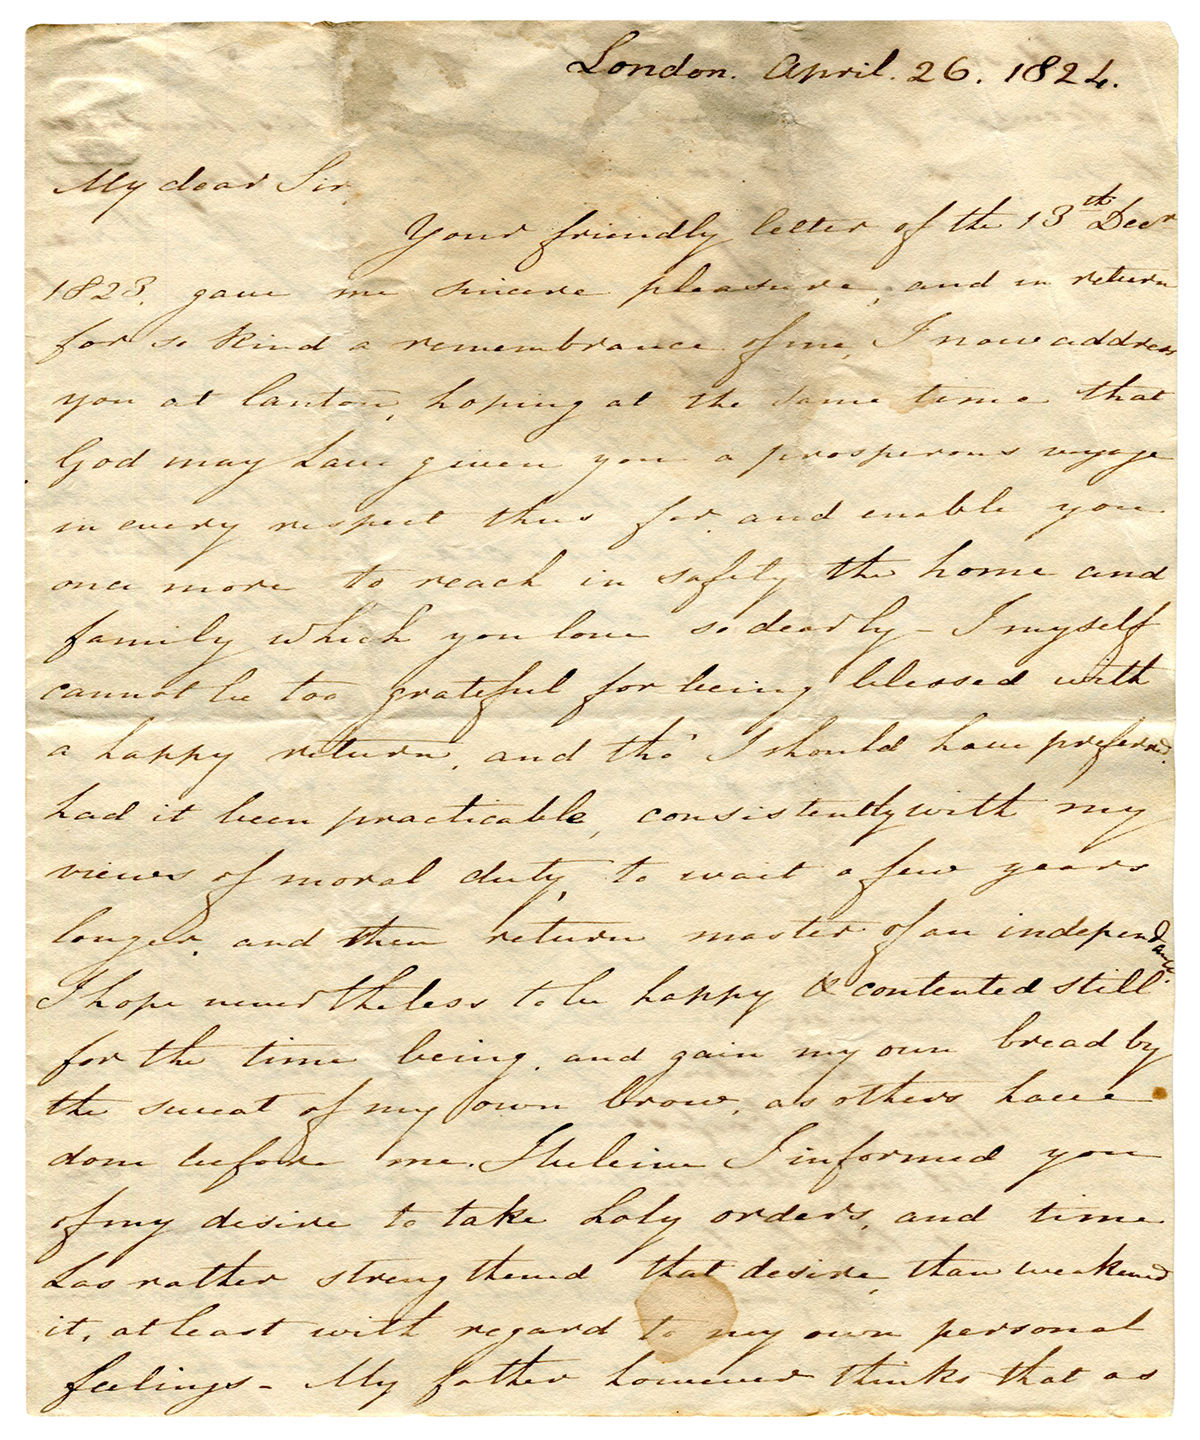 London. April. 26. 1824.
My dear Sir,
Your friendly letter of the 13th Decr
1823, gave me sincere pleasure, and in return
for so kind a remembrance of me, I now address
you at Canton, hoping at the same time that
God may have given you a prosperous voyage
in every respect thus far, and enable you
once more to reach in safety the home and
family which you love so dearly – I myself
cannot be too grateful for being blessed with
a happy return, and tho' I should have preferred,
had it been practicable, consistently with my
views of moral duty, to wait a few years
longer, and then return master of an independance
I hope nevertheless to be happy & contented still
for the time being, and gain my own bread by
the sweat of my own brow, as others have
done before me. I beleive I informed you
of my desire to take holy orders, and time
has rather strengthened that desire, than weakened
it, at least with regard to my own personal
feelings – My father however thinks that as